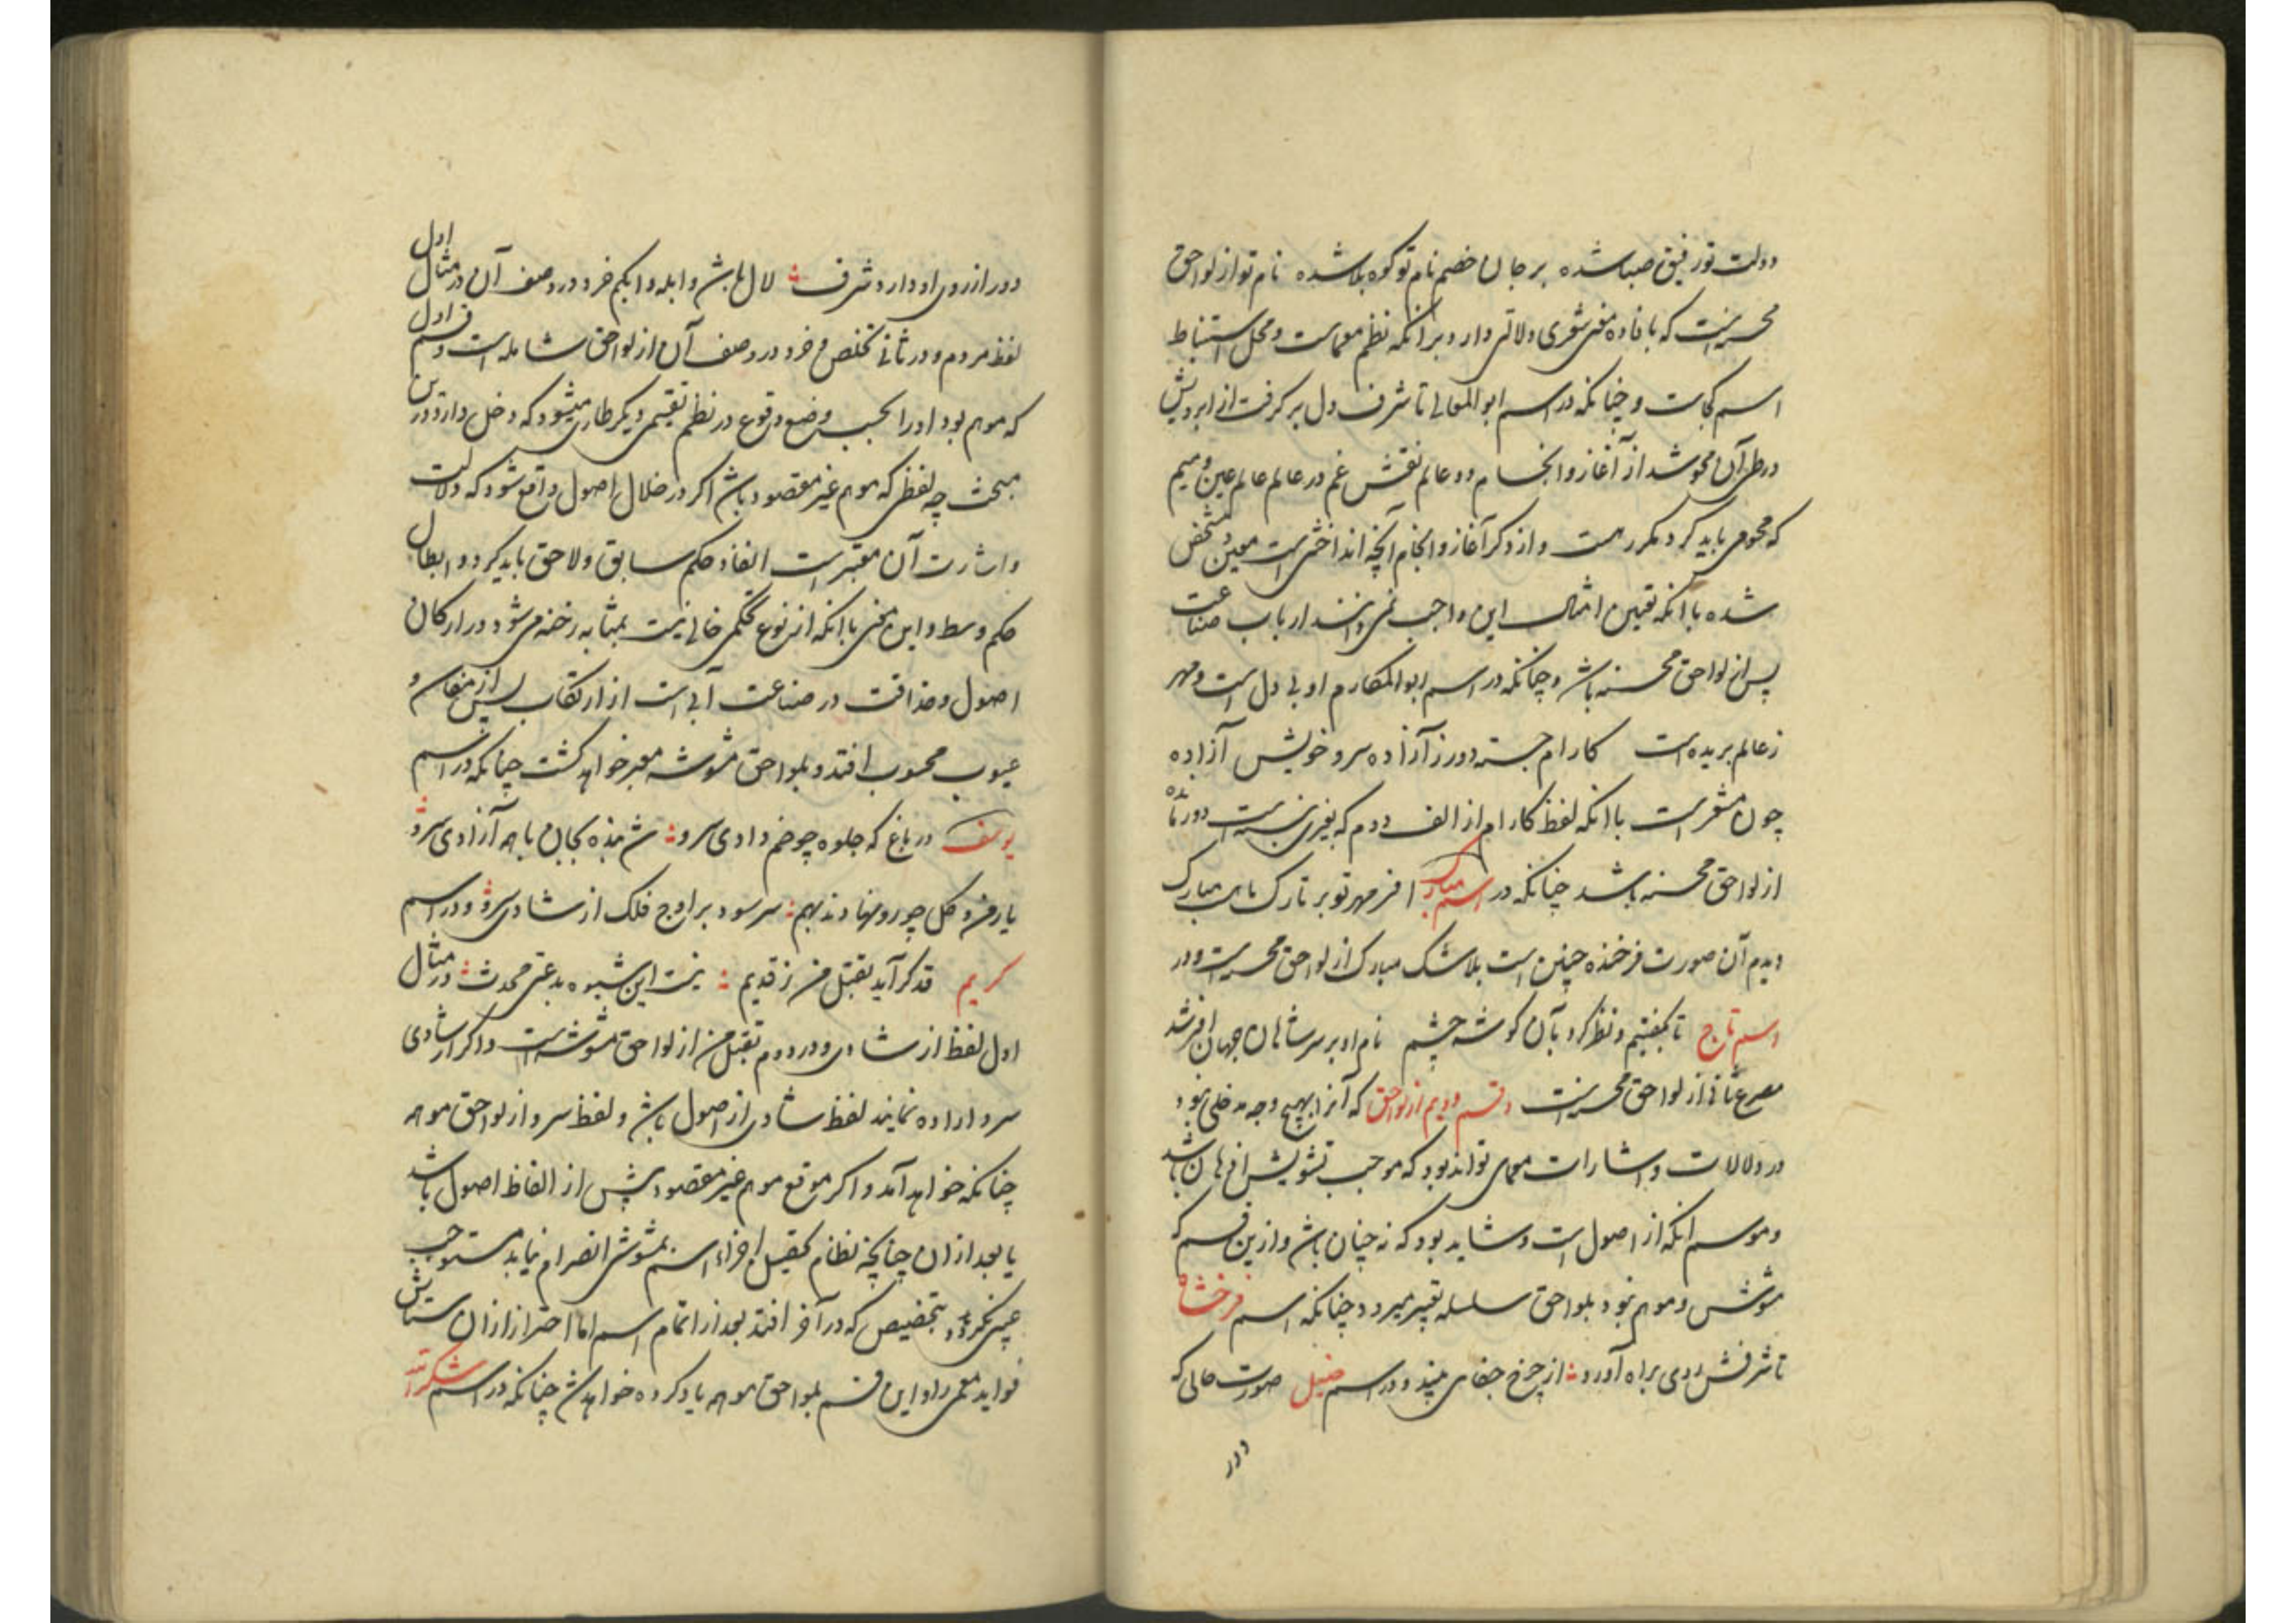 دولت تو رفیق صبا شده بر جان خصم نام تو کوه بلا شده نام تو از لواحق
محسن است که بافاده معنی شعری دلالتی دارد بر آنکه نظم معماست و محل استنباط
اسم کجاست و چنانکه در اسم ابو المعالی تا شرف دل بر گرفت از ابرویش
در طی آن محو شد از آغاز و انجام دو عالم نقش غم در عالم عالم عین و میم
که محو می باید کرد مکرر است و از ذکر آغاز و انجام آنچه انداختنی است معین و مشخص
شده با آنکه تعیین امثال این واجب نمی دانند ارباب صناعت
پس از لواحق محسنه باشد و چنانکه در اسم ابو المکارم او بی دل است و مهر
ز عالم بریده است کارام جسته دور ز آزاده سرو خویش آزاده
چون مشعر است با آنکه لفظ کارام از الف دوم که
از لواحق محسنه باشد چنانکه در اسم مبارک افسر مهر تو بر تارک ماهست مبارک
دیدم آن صورت فرخنده چنین است بلا شک مبارک از لواحق محسن است و در
اسم تاج تا بگفتیم و نظر کرد بآن گوشه چشم نام او بر سر شاهان جهان افسر شد
مصرع ثانی از لواحق محسن است و قسم دویم از لواحق که آنرا بهیچ وجه مدخلی نبود
در دلالات و اشارات معمای تواند بود که موجب تشویش اذهان باشد
و موسم آنکه از اصول است و شاید بود که نه چنان باشد و ازین قسم که
مشوش و موهم بود بلواحق سلسله تعبیر میرود و چنانکه اسم فرخشاه
تا شرفش روی براه آورد از چرخ جفای میبیند و در اسم خلیل صورت حالی که
دور
دور از روی او دارد شرف لال باشد و ابله و ابکم خرد در وصف آن در مثال اول
لفظ مردم و در ثانی تخلص و خرد در وصف آن از لواحق شامله است و قسم اول
که موهم بود او را بحسب وضع وقوع در نظم تقسیمی دیگر طاری میشود که دخل دارد درین
مبحث چه لفظی که موهم غیر مقصود باشد اگر در خلال اصول واقع شود که دلالت
و اشارت آن معتبر است الغاء حکم سابق و لاحق باید کرد و ابطال
حکم وسط و این معنی با آنکه از نوع تحکمی خالی نیست بمثابه رخنه می شود در ارکان
اصول و حذاقت در صناعت آبی است از ارتکاب پس از منقصات و
عیوب محسوب افتد و بلواحق مشوشه معبر خواهد گشت چنانکه در اسم
یوسف در باغ که جلوه چو خم دادی سرو شد بنده بجان با همه آزادی سرو
یا رخ و گل چو رو نهادند بهم سر سود بر اوج فلک از شادی سرو و در اسم
کریم قد گر آید بقتل من ز قدیم نیست این شیوه بدعتی محدث در مثال
اول لفظ از شادی و در دوم بقتل من از لواحق مشوشه است و اگر از شادی
سرو اراده نمایند لفظ شادی از اصول باشد و لفظ سرو از لواحق موهمه
چنانکه خواهد آمد و اگر موقع موهم غیر مقصود پیش از الفاظ اصول باشد
یا بعد از آن چنانچه نظام تحصیل اجزاء اسم بمشوشی انصرام نیابد مستوجب
عیبی نگردد بتخصیص که در آخر افتد بعد از اتمام اسم اما احتراز از آن ستایش
فواید معمی راد این قسم بلواحق موهمه یاد کرده خواهد شد چنانکه در اسم شکرالله